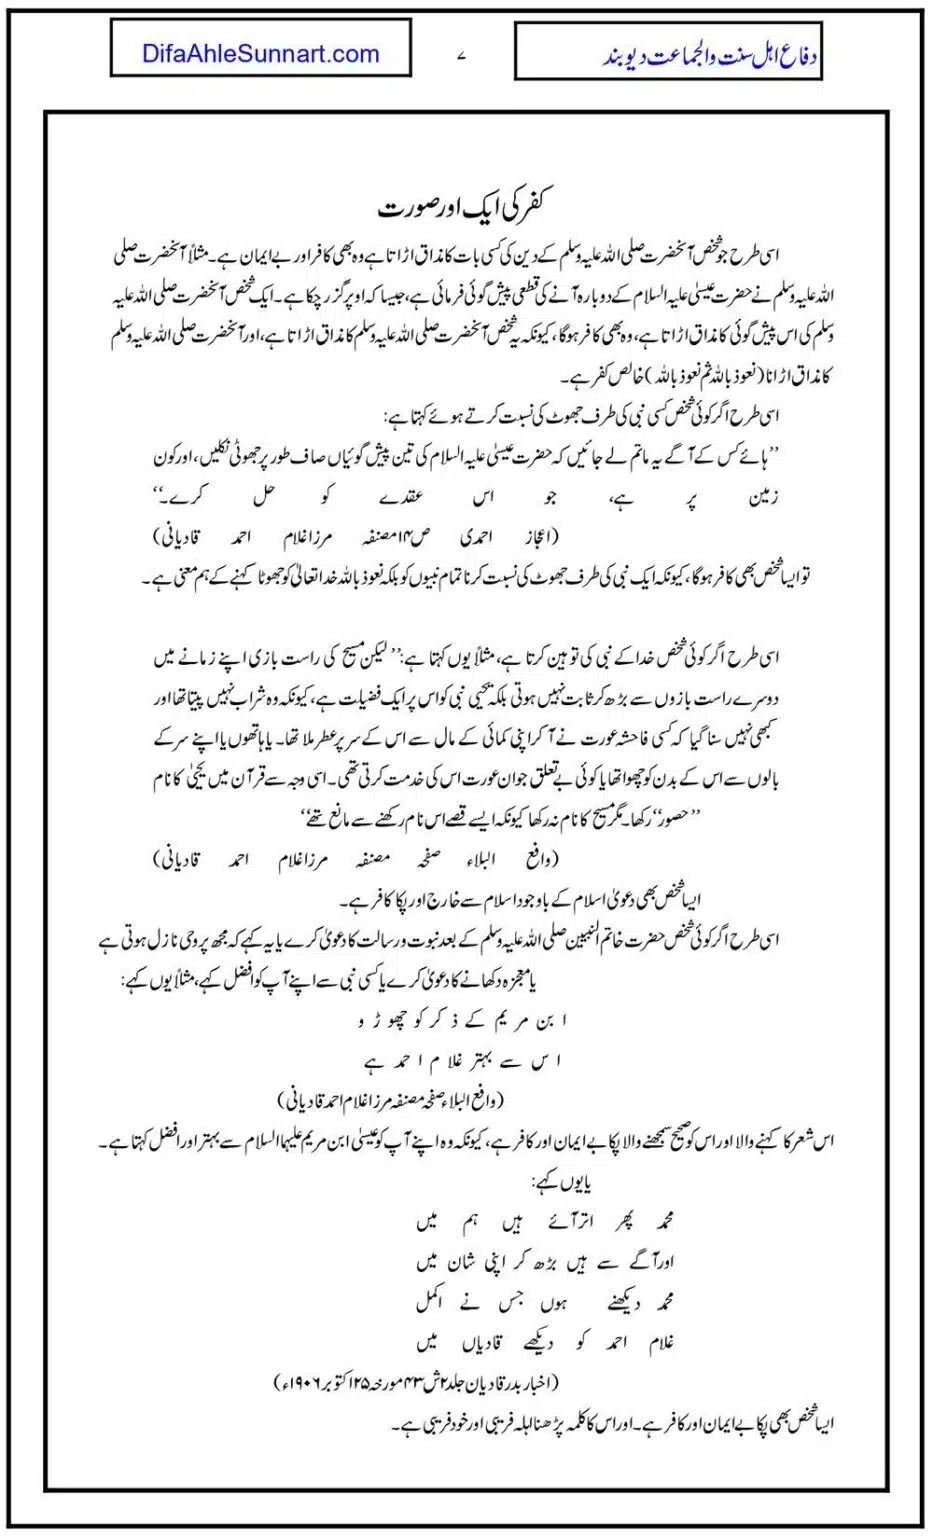 DifaAhleSunnart.com
۷
دفاع اہل سنت والجماعت دیوبند
کفر کی ایک اور صورت
اسی طرح جو شخص آنحضرت صلی اللہ علیہ وسلم کے دین کی کسی بات کا مذاق اڑاتا ہے وہ بھی کافر اور بے ایمان ہے۔ مثلاً آنحضرت صلی
اللہ علیہ وسلم نے حضرت عیسیٰ علیہ السلام کے دوبارہ آنے کی قطعی پیش گوئی فرمائی ہے، جیسا کہ اوپر گزر چکا ہے۔ ایک شخص آنحضرت صلی اللہ علیہ
وسلم کی اس پیش گوئی کا مذاق اڑاتا ہے، وہ بھی کافر ہوگا، کیونکہ یہ شخص آنحضرت صلی اللہ علیہ وسلم کا مذاق اڑاتا ہے، اور آنحضرت صلی اللہ علیہ وسلم
کا مذاق اڑانا (نعوذ باللہ ثم نعوذ باللہ) خالص کفر ہے۔
اسی طرح اگر کوئی شخص کسی نبی کی طرف جھوٹ کی نسبت کرتے ہوئے کہتا ہے:
’’ہائے کس کے آگے یہ ماتم لے جائیں کہ حضرت عیسیٰ علیہ السلام کی تین پیش گوئیاں صاف طور پر جھوٹی نکلیں، اور کون
زمین پر ہے، جو اس عقدے کو حل کرے۔‘‘
(اعجاز احمدی ص۱۴ مصنفہ مرزا غلام احمد قادیانی)
تو ایسا شخص بھی کافر ہوگا، کیونکہ ایک نبی کی طرف جھوٹ کی نسبت کرنا تمام نبیوں کو بلکہ نعوذ باللہ خدا تعالیٰ کو جھوٹا کہنے کے ہم معنی ہے۔
اسی طرح اگر کوئی شخص خدا کے نبی کی توہین کرتا ہے، مثلاً یوں کہتا ہے: ’’لیکن مسیح کی راست بازی اپنے زمانے میں
دوسرے راست بازوں سے بڑھ کر ثابت نہیں ہوتی بلکہ یحیی نبی کو اس پر ایک فضیلت ہے، کیونکہ وہ شراب نہیں پیتا تھا اور
کبھی نہیں سنا گیا کہ کسی فاحشہ عورت نے آ کر اپنی کمائی کے مال سے اس کے سر پر عطر ملا تھا۔ یا ہاتھوں یا اپنے سر کے
بالوں سے اس کے بدن کو چھوا تھا یا کوئی بے تعلق جوان عورت اس کی خدمت کرتی تھی۔ اسی وجہ سے قرآن میں یحییٰ کا نام
’’حصور‘‘ رکھا۔ مگر مسیح کا نام نہ رکھا کیونکہ ایسے قصے اس نام رکھنے سے مانع تھے‘‘
(وافع البلاء صفحہ مصنفہ مرزا غلام احمد قادیانی)
ایسا شخص بھی دعویٰ اسلام کے باوجود اسلام سے خارج اور پکا کافر ہے۔
اسی طرح اگر کوئی شخص حضرت خاتم النبیین صلی اللہ علیہ وسلم کے بعد نبوت و رسالت کا دعویٰ کرے یا یہ کہے کہ مجھ پر وحی نازل ہوتی ہے
یا معجزہ دکھانے کا دعویٰ کرے یا کسی نبی سے اپنے آپ کو افضل کہے، مثلاً یوں کہے:
ابن مریم کے ذکر کو چھوڑو
اس سے بہتر غلام احمد ہے
(وافع البلاء صفحہ مصنفہ مرزا غلام احمد قادیانی)
اس شعر کا کہنے والا اور اس کو صحیح سمجھنے والا پکا بے ایمان اور کافر ہے، کیونکہ وہ اپنے آپ کو عیسیٰ ابن مریم علیہما السلام سے بہتر اور افضل کہتا ہے۔
یا یوں کہے:
محمد پھر اتر آئے ہیں ہم میں
اور آگے سے ہیں بڑھ کر اپنی شان میں
محمد دیکھنے ہوں جس نے اکمل
غلام احمد کو دیکھے قادیاں میں
(اخبار بدر قادیان جلد۲ ش۴۳ مورخہ ۲۵ اکتوبر ۱۹۰۶ء)
ایسا شخص بھی پکا بے ایمان اور کافر ہے۔ اور اس کا کلمہ پڑھنا ابلہ فریبی اور خود فریبی ہے۔